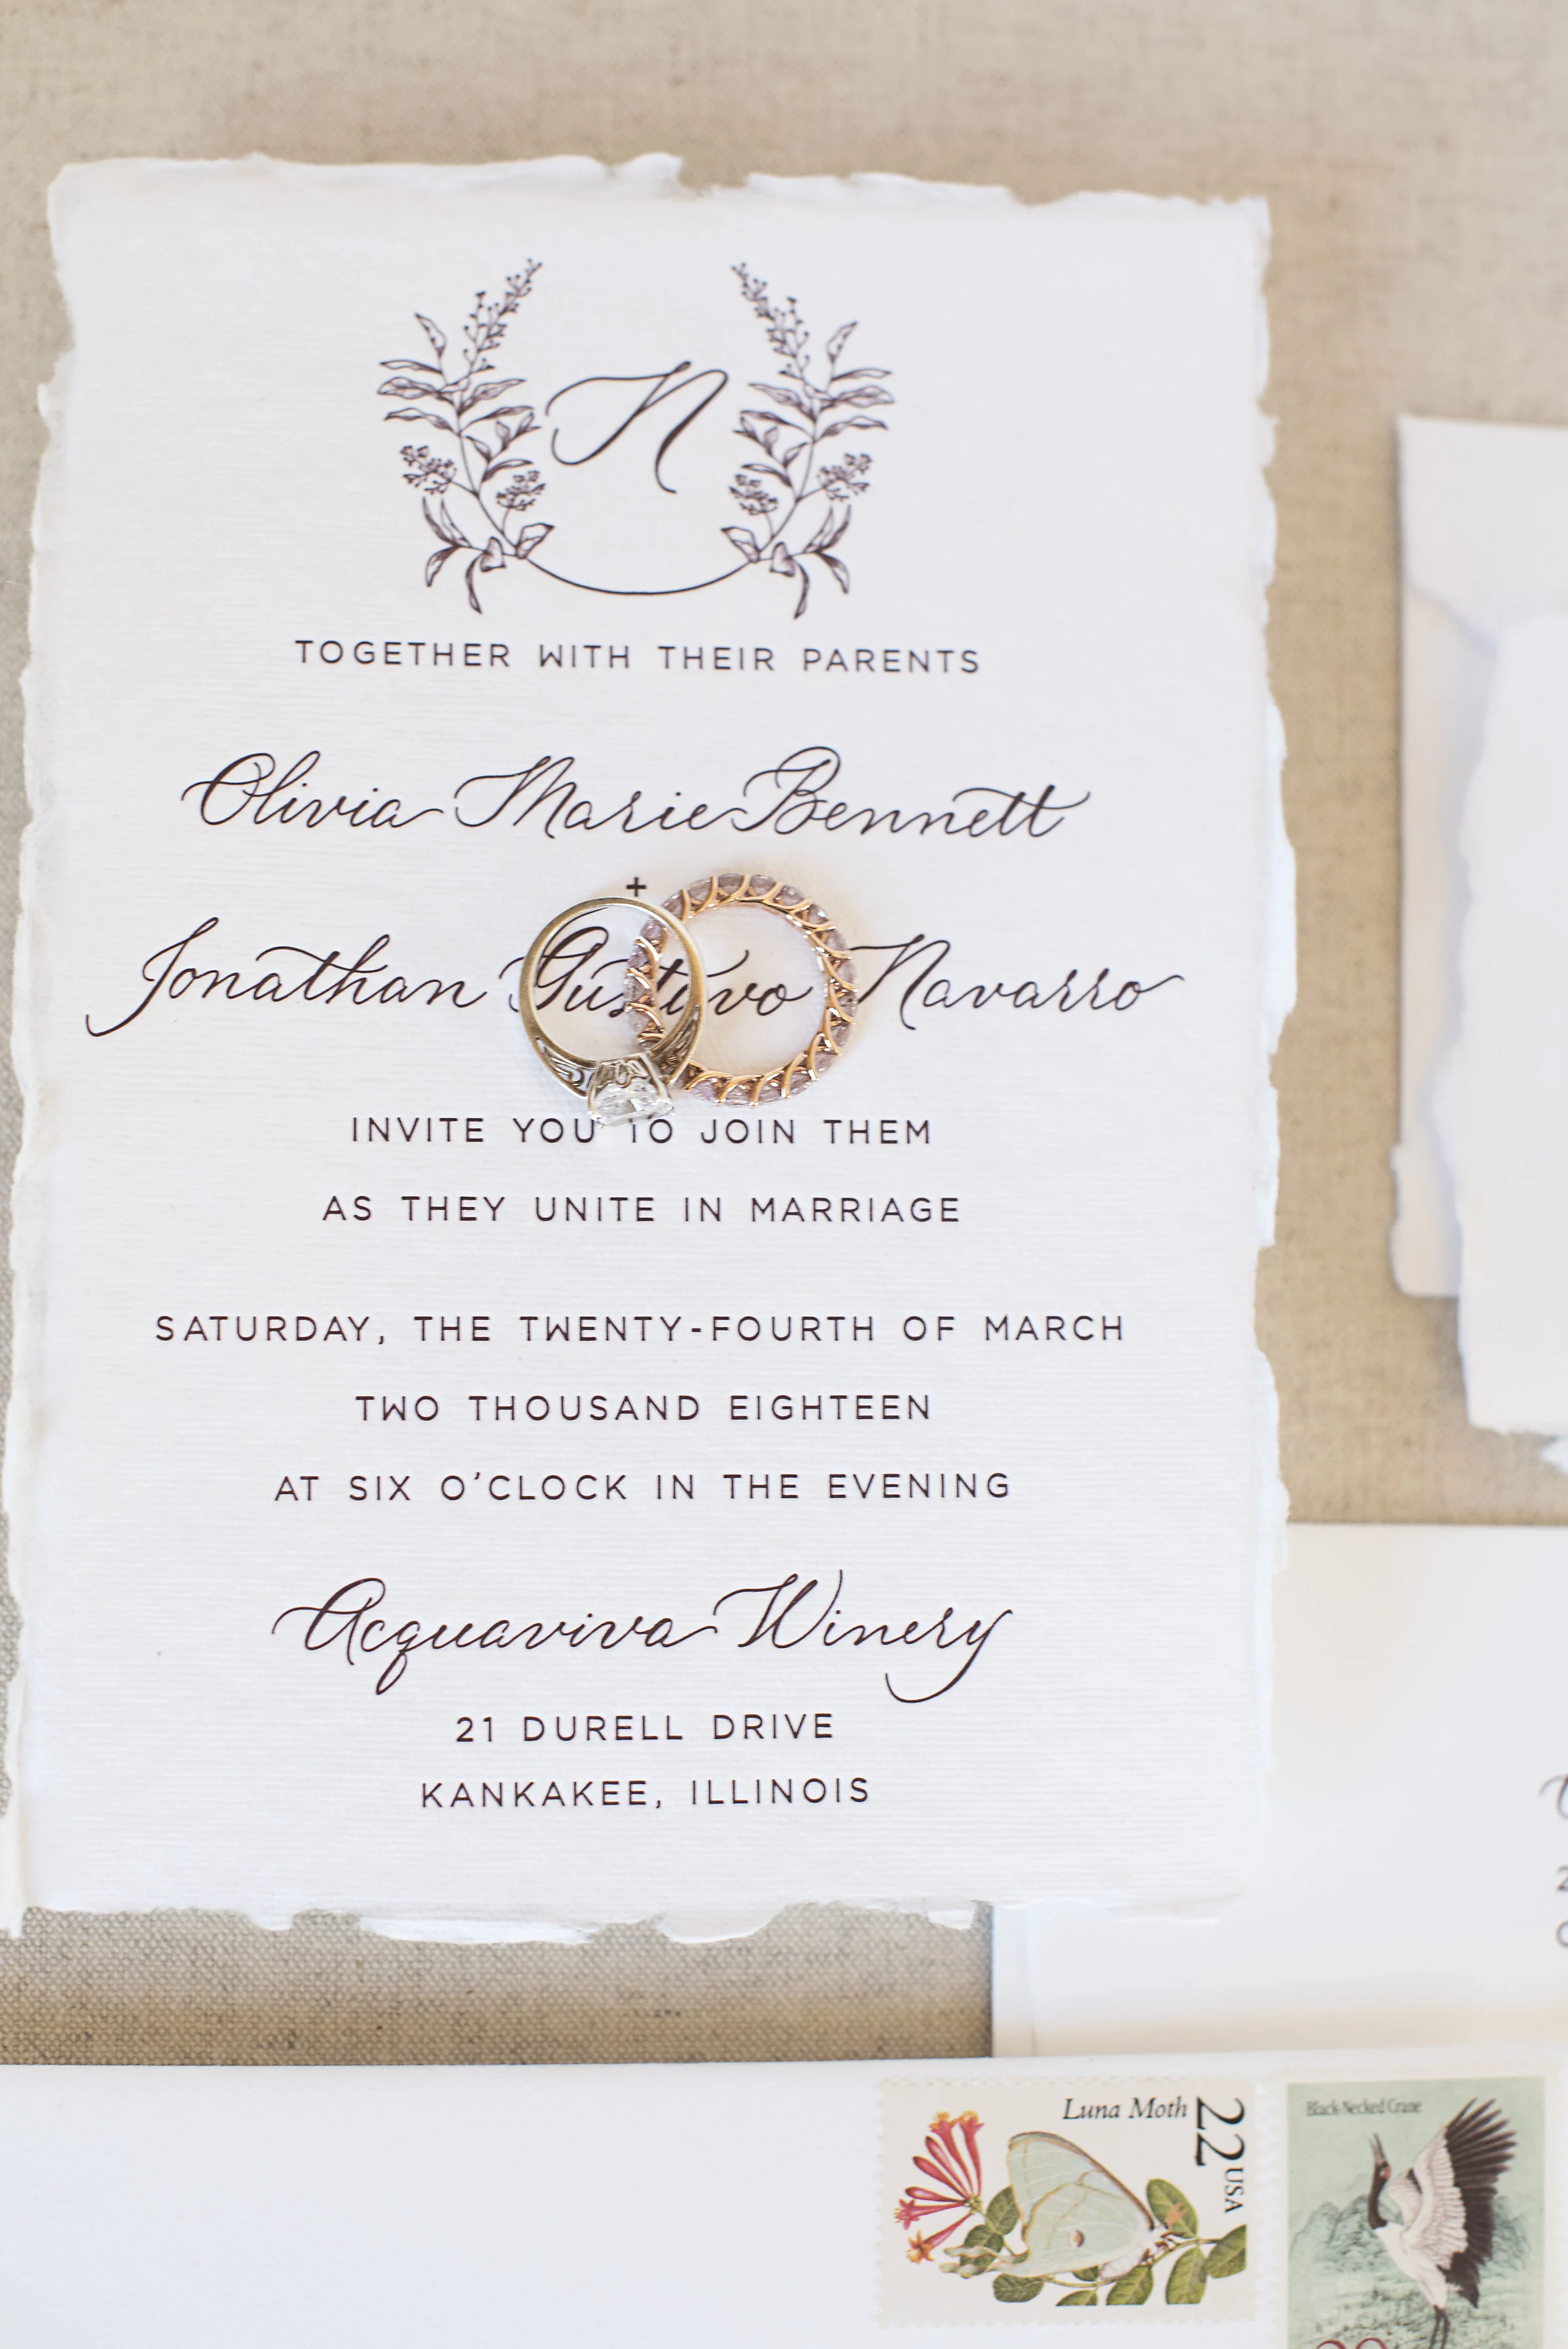 N
TOGETHER WITH THEIR PARENTS
Olivia Marie Bennett
+
Jonathan Gustavo Navarro
INVITE YOU TO JOIN THEM
AS THEY UNITE IN MARRIAGE
SATURDAY, THE TWENTY-FOURTH OF MARCH
TWO THOUSAND EIGHTEEN
AT SIX O'CLOCK IN THE EVENING
Acquaviva Winery
21 DURELL DRIVE
KANKAKEE, ILLINOIS
Luna Moth
22 USA
Black-Necked Crane